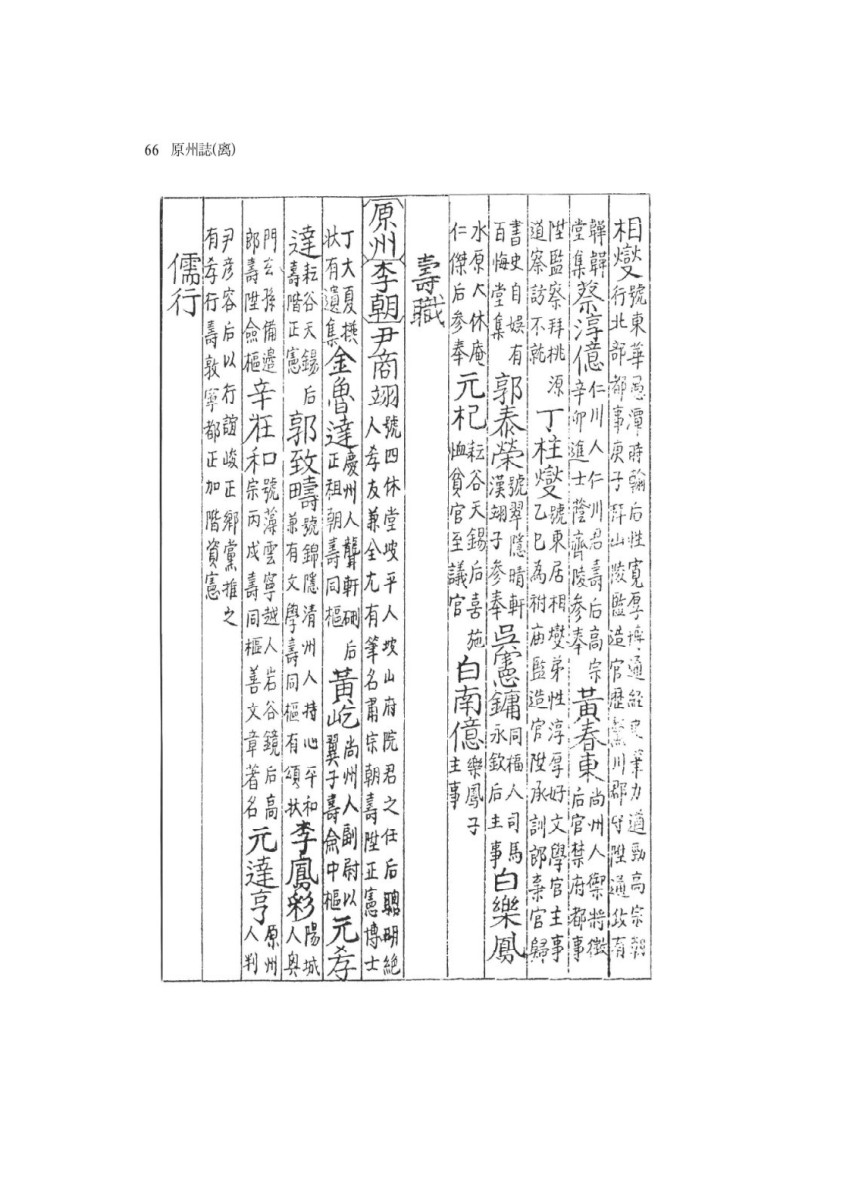 66 原州誌(离)
相燮 號東華愚潭時翰后性寬厚博通經史筆力遒勁高宗朝行北部都事庚子拜山陵監造官歷川郡守陞通政有
韡韡堂集 蔡淳億 仁川人仁川君壽后高宗辛卯進士蔭齊陵參奉 黃春東 尚州人禦將徵后官禁府都事
陞監察拜桃源道察訪不就 丁柱燮 號東居相燮弟性淳厚好文學官主事乙巳為祔庙監造官陞承訓郎棄官歸
書史自娛有百悔堂集 郭泰榮 號翠隱晴軒漢翊子參奉 吳憲鏞 同福人司馬永欽后主事 白樂鳳
水原人休庵仁傑后參奉 元杞 耘谷天錫后喜施恤貧官至議官 白南億 樂鳳子主事
壽職
原州 李朝 尹商翊 號四休堂坡平人坡山府院君之任后聰明絕人孝友兼全尤有筆名肅宗朝壽陞正憲博士
丁大夏撰狀有遺集 金魯達 慶州人聾軒硎后正祖朝壽同樞 黃屹 尚州人副尉以翼子壽僉中樞 元孝
達 耘谷天錫后壽階正憲 郭致疇 號錦隱清州人持心平和兼有文學壽同樞有頌狀 李鳳彩 陽城人奧
門玄孫備邊郎壽陞僉樞 辛在和 號藻雲寧越人岩谷鏡后高宗丙戌壽同樞善文章著名 元達亨 原州人判
尹彥容后以行誼峻正鄉黨推之有孝行壽敦寧都正加階資憲
儒行